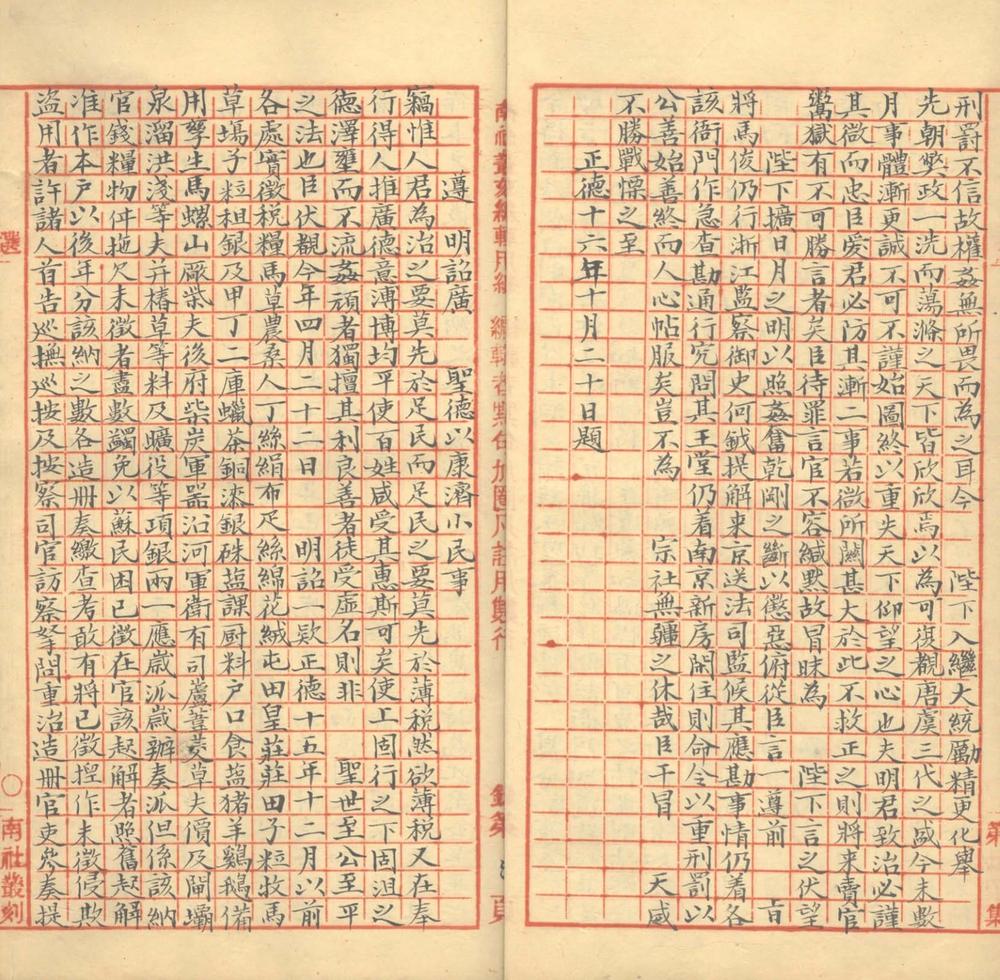 刑罰不信故權姦無所畏而為之耳今　　陛下入繼大統勵精更化舉
先朝獘政一洗而蕩滌之天下皆欣欣焉以為可復覩唐虞三代之盛今未數
月事體漸更誠不可不謹始圖終以重失天下仰望之心也夫明君致治必謹
其微而忠臣愛君必防其漸二事若微所關甚大於此不救正之則將來賣官
鬻獄有不可勝言者矣臣待罪言官不容緘默故冒昧為　　陛下言之伏望
陛下擴日月之明以照姦奮乾剛之斷以懲惡俯從臣言一遵前　旨
將馬俊仍行浙江監察御史何鉞提解來京送法司監候其應勘事情仍着各
該衙門作急查勘通行究問其王堂仍着南京新房閑住則命令以重刑罰以
公善始善終而人心帖服矣豈不為　　宗社無疆之休哉臣干冒　　天威
不勝戰慄之至
正德十六年十月二十日題
南社叢刻
遵　明詔廣　聖德以康濟小民事
竊惟人君為治之要莫先於足民而足民之要莫先於薄稅然欲薄稅又在奉
行得人推廣德意溥博均平使百姓咸受其惠斯可矣使上固行之下固沮之
德澤壅而不流姦頑者獨擅其利良善者徒受虛名則非　　聖世至公至平
之法也臣伏覩今年四月二十二日　　明詔一欵正德十五年十二月以前
各處實徵稅糧馬草農桑人丁絲絹布疋絲綿花絨屯田皇莊莊田子粒牧馬
草塲子粒租銀及甲丁二庫蠟茶銅漆銀硃塩課厨料戶口食塩猪羊鷄鵝備
用孳生馬螺山廠柴夫後府柴炭軍器沿河軍衛有司蘆葦茭草夫價及閘壩
泉溜洪淺等夫并樁草等料及曠役等項銀兩一應歲派歲辦奏派但係該納
官錢糧物件拖欠未徵者盡數蠲免以蘇民困已徵在官該起解者照舊起解
准作本戶以後年分該納之數各造册奏繳查考敢有將已徵揑作未徵侵欺
盜用者許諸人首告巡撫巡按及按察司官訪察拏問重治造册官吏叅奏提
選
南社叢刻